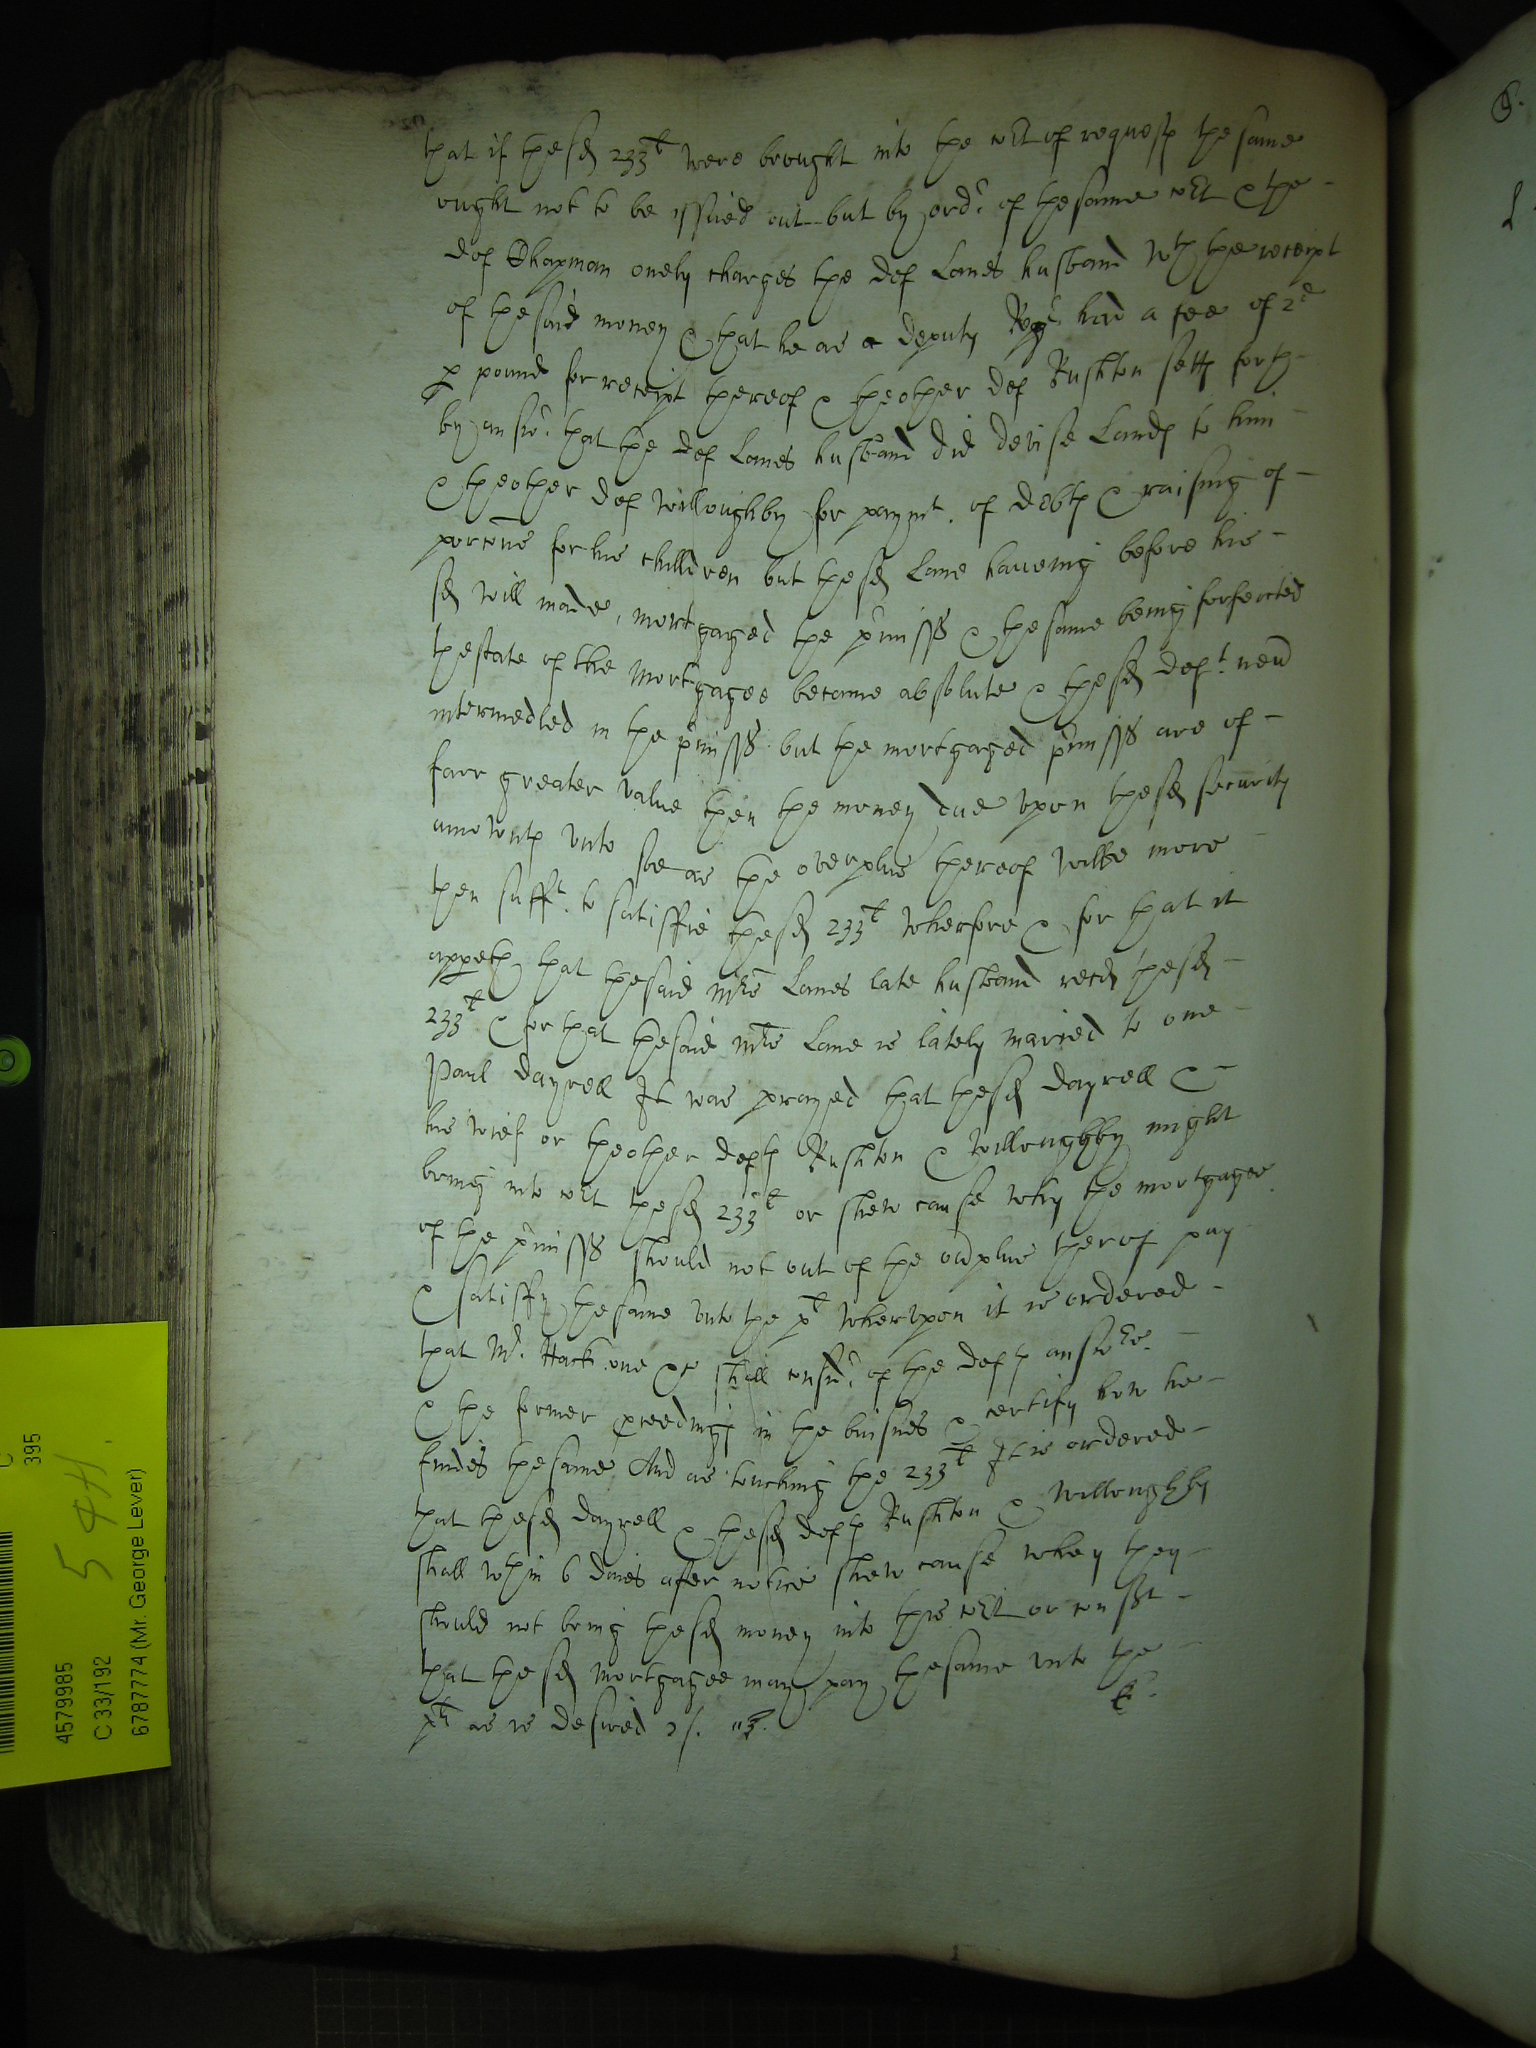 that if the sd 233l were brought into the cort of request the same
ought not to be issued out but by ordr of the same cort & the
def Chapman onely charges the def Lanes husband wth the receipt
of the said money & that he as a deputy Regr had a fee of 2d
p pound for receipt thereof & the other def Rushton setts forth
by answr that the def Lanes husband did devise Lands to him
& the other def Willoughby for paymt of debts & raising of
porcons for his children but the sd Lane haueing before his
sd will made, mortgaged the prmisss & the same being forfeited
the state of the Mortgagee became absolute & the sd deft neur
intermedled in the prmisss but the mortgaged prmisss are of
farr greater value then the money due vpon the sd security
amownts vnto soe as the overplus thereof wilbe more
then sufft to satisfie the sd 233l wherfore & for that it
appeth that the said Mrs Lanes late husband recd the sd
233l & for that the said Mrs Lane is lately maried to one
Paul dayrell It was prayed that the sd dayrell &
his wief or the other defts Rushton & Willoughby might
bring into cort the sd 233l or shew cause why the mortgagee
of the prmisss should not out of the ouerplus therof pay
& satisfy the same vnto the pl whervpon it is ordered
that Mr Hack one &c shall consider of the defts answers
& the former pceedings in the buisnes & certify how he
findes the same And as touching the 233l It is ordered
that the sd dayrell & the sd defts Rushton & Willoughby
shall wthin 6 daies after notice shew cause whey they
should not bring the sd money into this cort or consent
that the sd Mortgagee may pay the same vnto the
pl as is desired
4579985
C 33/192
6787774 (Mr. George Lever)
C
395
5 4H.